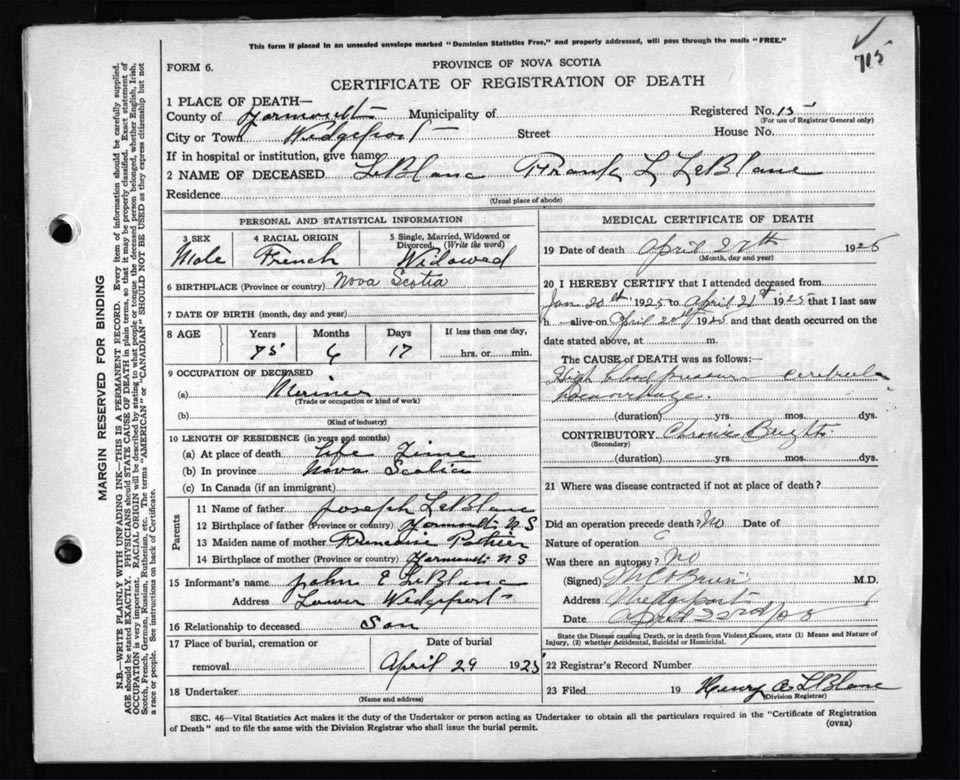 This form if placed in an unsealed envelope marked "Dominion Statistics Free," and properly addressed, will pass through the mails "FREE."
715
FORM 6.
PROVINCE OF NOVA SCOTIA
CERTIFICATE OF REGISTRATION OF DEATH
1 PLACE OF DEATH—
County of Yarmouth Municipality of Registered No. 15
(For use of Registrar General only)
City or Town Wedgeport Street House No.
If in hospital or institution, give name
2 NAME OF DECEASED LeBlanc Frank L LeBlanc
Residence
(Usual place of abode)
PERSONAL AND STATISTICAL INFORMATION
3 SEX 4 RACIAL ORIGIN 5 Single, Married, Widowed or Divorced. (Write the word)
Male French Widowed
6 BIRTHPLACE (Province or country) Nova Scotia
7 DATE OF BIRTH (month, day and year)
8 AGE Years Months Days If less than one day,
75 6 17 hrs. or min.
9 OCCUPATION OF DECEASED
(a) Meriner
(Trade or occupation or kind of work)
(b)
(Kind of industry)
10 LENGTH OF RESIDENCE (in years and months)
(a) At place of death life Time
(b) In province Nova Scotia
(c) In Canada (if an immigrant)
Parents
11 Name of father Joseph LeBlanc
12 Birthplace of father (Province or country) Yarmouth N S
13 Maiden name of mother Pothier
14 Birthplace of mother (Province or country) Yarmouth N S
15 Informant's name John E LeBlanc
Address Lower Wedgeport
16 Relationship to deceased Son
17 Place of burial, cremation or Date of burial
removal April 29 1925
18 Undertaker
(Name and address)
MEDICAL CERTIFICATE OF DEATH
19 Date of death April 27th 1925
(Month, day and year)
20 I HEREBY CERTIFY that I attended deceased from
Jan. 20th 1925 to April 21st 1925 that I last saw
h alive on April 20th 1925 and that death occurred on the
date stated above, at m.
The CAUSE OF DEATH was as follows:—
High blood pressure cerebral
hemorrhage.
(duration) yrs. mos. dys.
CONTRIBUTORY Chronic Brights
(Secondary)
(duration) yrs. mos. dys.
21 Where was disease contracted if not at place of death?
Did an operation precede death? No Date of
Nature of operation
Was there an autopsy? No
(Signed) O'Brien M.D.
Address Wedgeport
Date April
State the Disease causing Death, or in death from Violent Causes, state (1) Means and Nature of
Injury, (2) whether Accidental, Suicidal or Homicidal.
22 Registrar's Record Number
23 Filed 19 Henry A LeBlanc
(Division Registrar)
SEC. 46—Vital Statistics Act makes it the duty of the Undertaker or person acting as Undertaker to obtain all the particulars required in the "Certificate of Registration
of Death" and to file the same with the Division Registrar who shall issue the burial permit. (OVER)
MARGIN RESERVED FOR BINDING
N.B.—WRITE PLAINLY WITH UNFADING INK—THIS IS A PERMANENT RECORD. Every item of information should be carefully supplied.
AGE should be stated EXACTLY. PHYSICIANS should STATE CAUSE OF DEATH in plain terms, so that it may be properly classified. Exact statement of
OCCUPATION is very important. RACIAL ORIGIN will be described by stating to what people or tongue the deceased person belonged, whether English, Irish,
Scotch, French, German, Russian, Ruthenian, etc. The terms "AMERICAN" or "CANADIAN" SHOULD NOT BE USED as they express citizenship but not
a race or people. See instructions on back of Certificate.